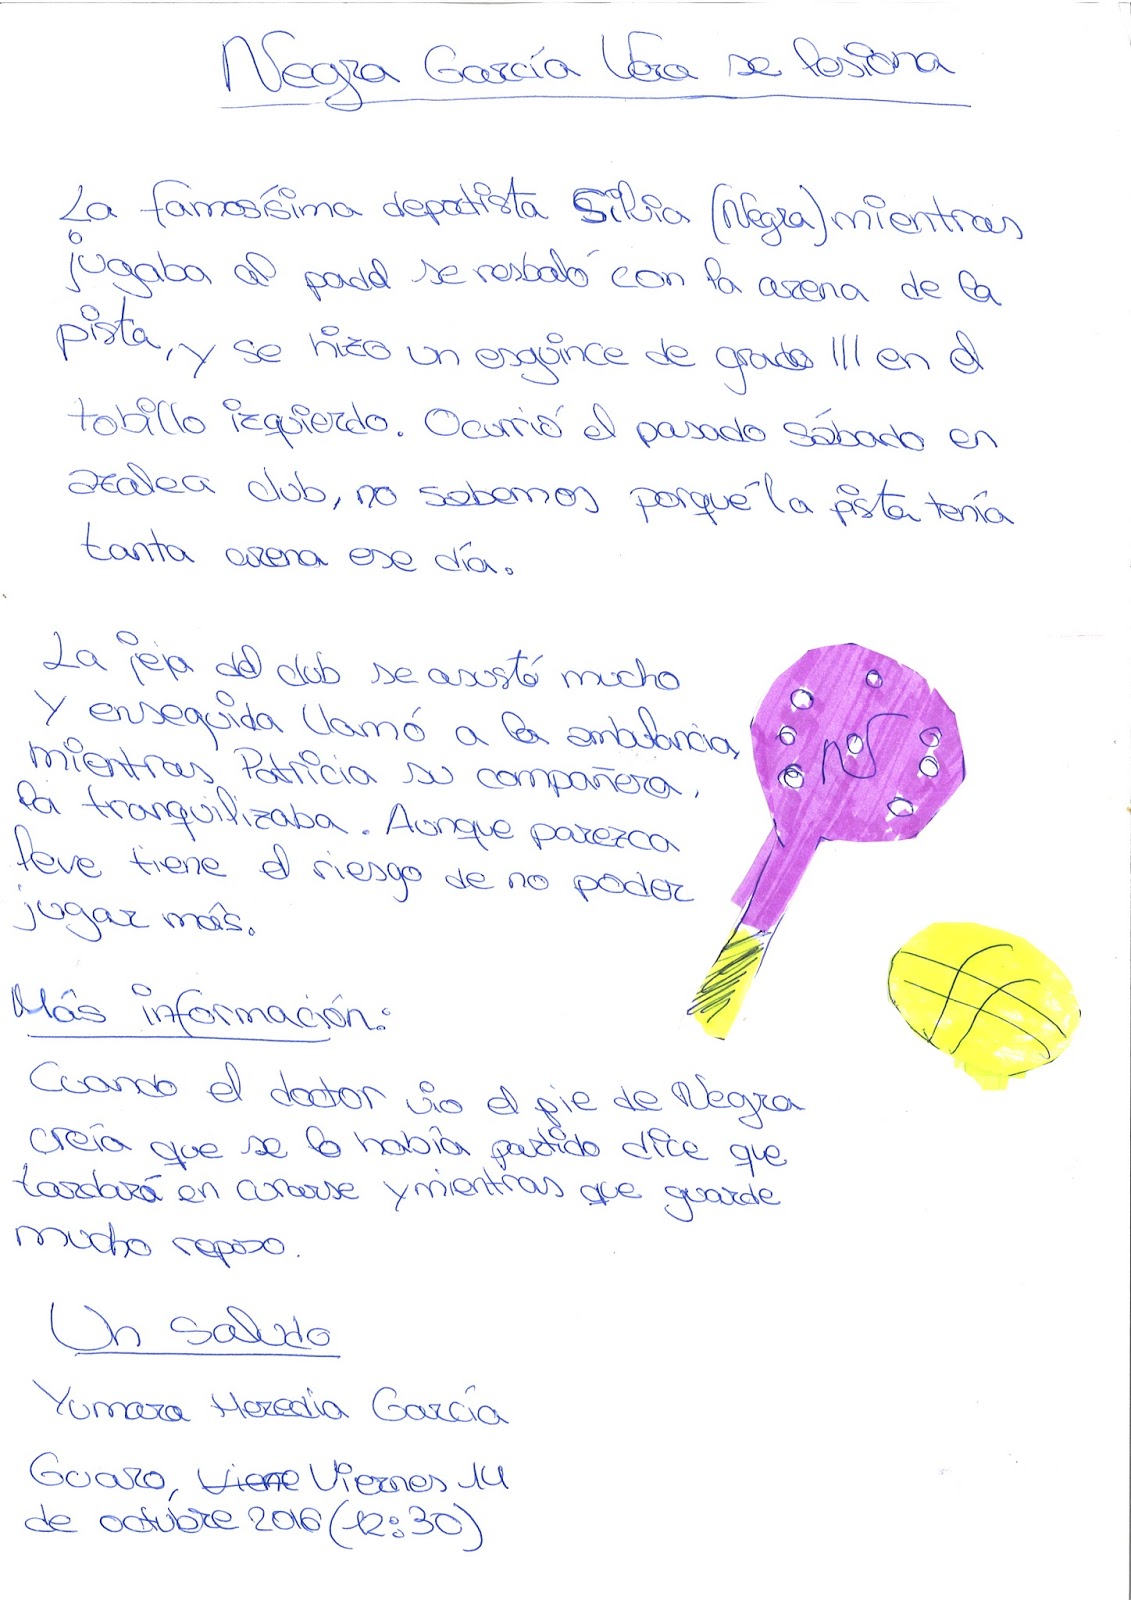 Negra García Vera se lesiona
La famosísima depotista Silvia (Negra) mientras
jugaba al padel se resbaló con la arena de la
pista, y se hizo un esguince de grado III en el
tobillo izquierdo. Ocurrió el pasado sábado en
azalea club, no sabemos porqué la pista tenía
tanta arena ese día.
La jefa del club se asustó mucho
Y enseguida llamó a la ambulancia,
mientras Patricia su compañera,
la tranquilizaba. Aunque parezca
leve tiene el riesgo de no poder
jugar más.
Más información:
Cuando el doctor vio el pie de Negra
creía que se lo había partido dice que
tardará en curarse y mientras que guarde
mucho reposo.
Un saludo
Yumara Heredia García
Guaro, Viene Viernes 14
de octubre 2016 (12:30)